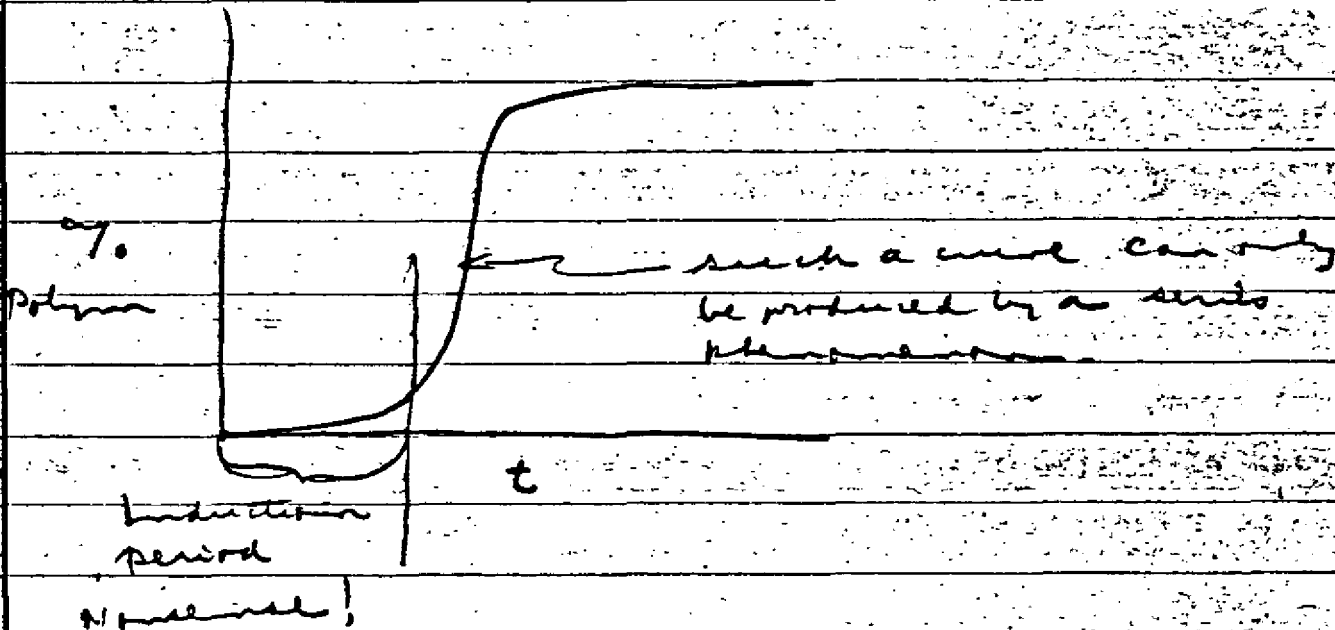 %
Polymer
such a curve can only
be produced by a series
phenomenon.
t
Induction
period
Nonsense!